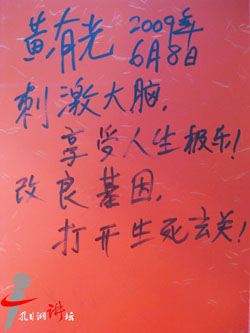 黄有光 2009年
6月8日
刺激大脑,
享受人生极乐!
改良基因,
打开生死玄关!
孔目湖讲坛